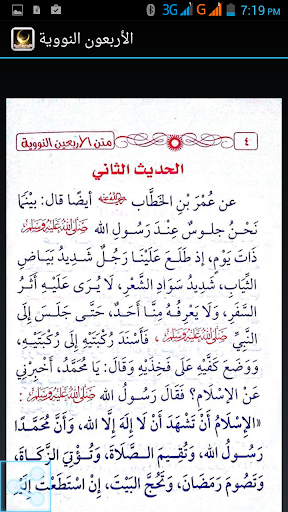 3G G 7:19 PM
الأربعون النووية
متن الأربعين النووية ٤
الحديث الثاني
عن عُمَرَ بْنِ الخَطَّابِ رضي الله عنه أيضًا قال: بَيْنَمَا
نَحْنُ جلوسٌ عِنْدَ رَسُولِ اللهِ صلى الله عليه وسلم
ذَاتَ يَوْمٍ، إذ طَلَعَ عَلَيْنَا رَجُلٌ شَدِيدُ بَيَاضِ
الثِّيَابِ، شَدِيدُ سَوَادِ الشَّعْرِ، لَا يُرَى عَلَيْهِ أَثَرُ
السَّفَرِ، وَلَا يَعْرِفُهُ مِنَّا أَحَدٌ، حَتَّى جَلَسَ إِلَى
النَّبِيِّ صلى الله عليه وسلم، فَأَسْنَدَ رُكْبَتَيْهِ إلى رُكْبَتَيْهِ،
وَوَضَعَ كَفَّيْهِ عَلَى فَخِذَيْهِ وَقَالَ: يَا مُحَمَّدُ، أَخْبِرْنِي
عَنْ الإسْلَامِ؟ فَقَالَ رَسُولُ اللهِ صلى الله عليه وسلم:
«الإِسْلَامُ أَنْ تَشْهَدَ أَنْ لَا إِلَهَ إِلَّا اللهُ، وَأَنَّ مُحَمَّدًا
رَسُولُ اللهِ، وَتُقِيمَ الصَّلَاةَ، وَتُؤْتِيَ الزَّكَاةَ،
وَتَصُومَ رَمَضَانَ، وَتَحُجَّ البَيْتَ، إنْ اسْتَطَعْتَ إِلَيْهِ